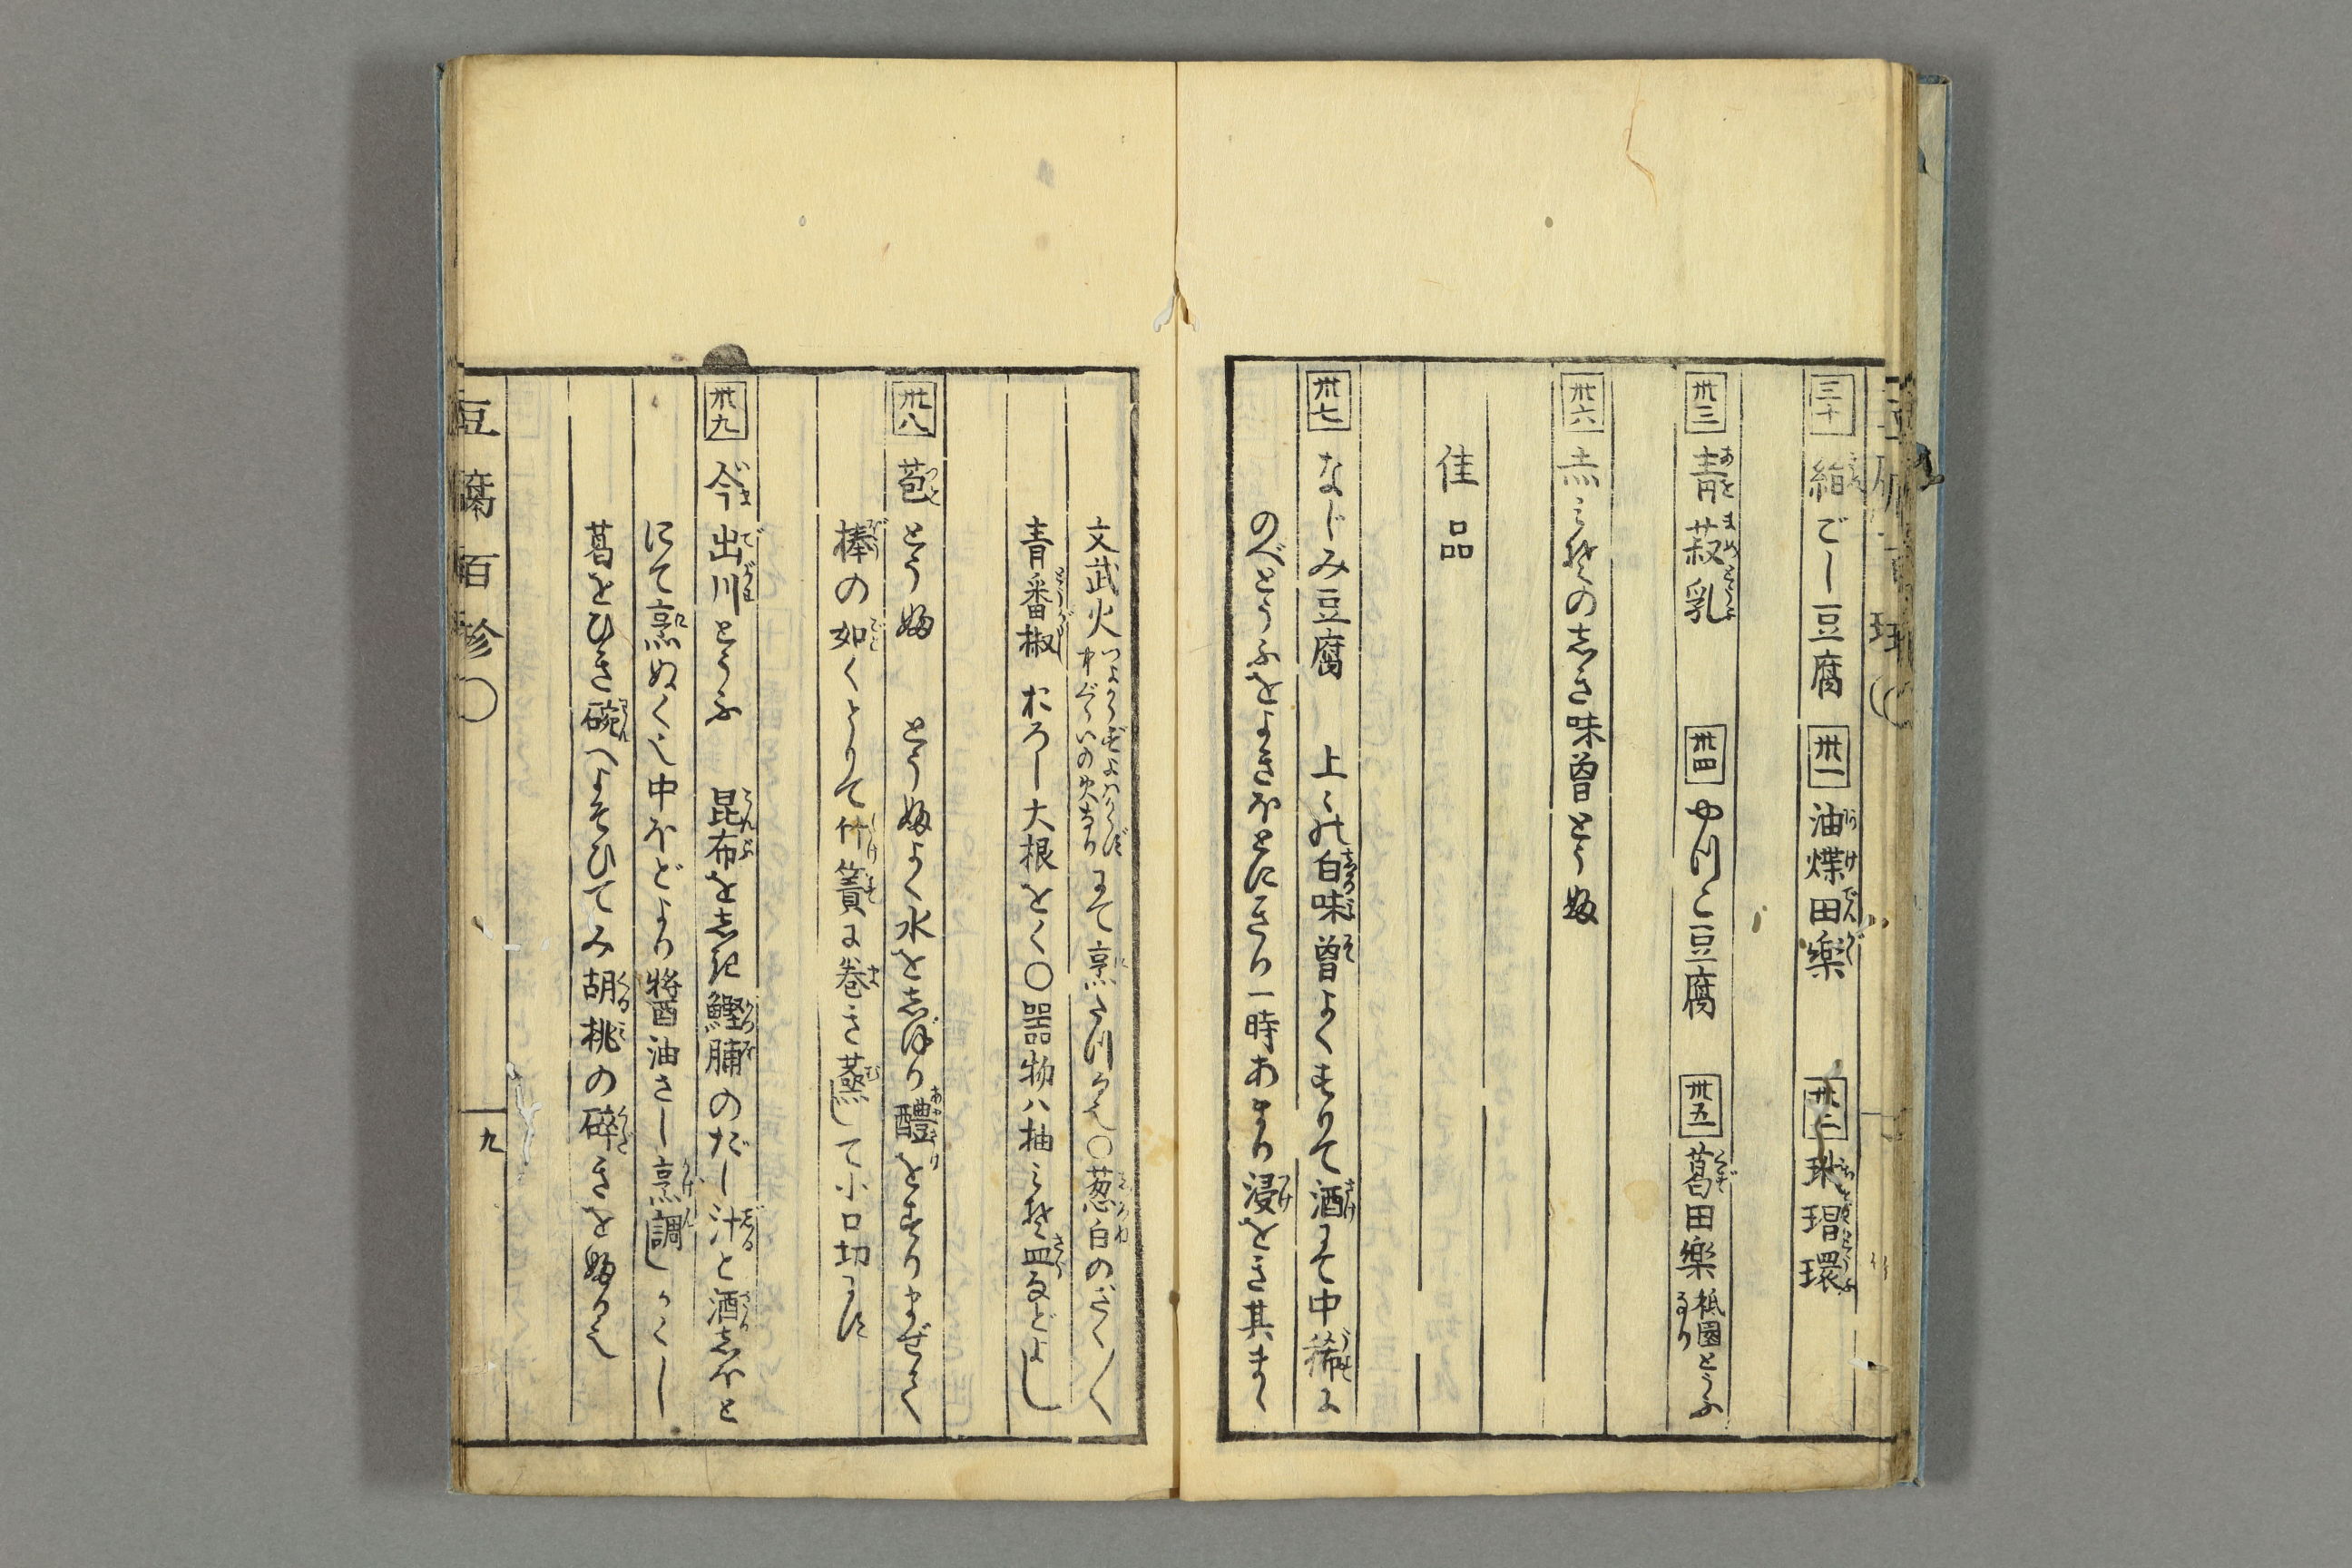 三十 縐ごし豆腐 卅一 油煠田楽 卅二
卅三 青菽乳 卅四 やつこ豆腐 卅五 葛田楽 祇園とうふなり
卅六 赤みそのしき味曽とうふ
佳品
卅七 なじみ豆腐 上々の白味曽よくすりて酒にて中稀に
のべとうふをよきほどにきり一時あまり浸をき其まゝ
文武火 つよからずよはからず中ぐらいの火なり にて烹たつるなり○葱白のざく／＼
青番椒 おろし大根をく○器物ハ抽みそ皿などよし
卅八 苞とうふ とうふよく水をしぼり醴をすりまぜて
棒の如くとりて竹簀に巻き蒸して小口切にす
卅九 今出川とうふ 昆布をしき鰹脯のだし汁と酒しほと
にて烹ぬく也中ほどより醤油さし烹調しかくし
葛をひき碗へよそひてみ胡桃の碎きをふる也
豆腐百珍 ○ 九